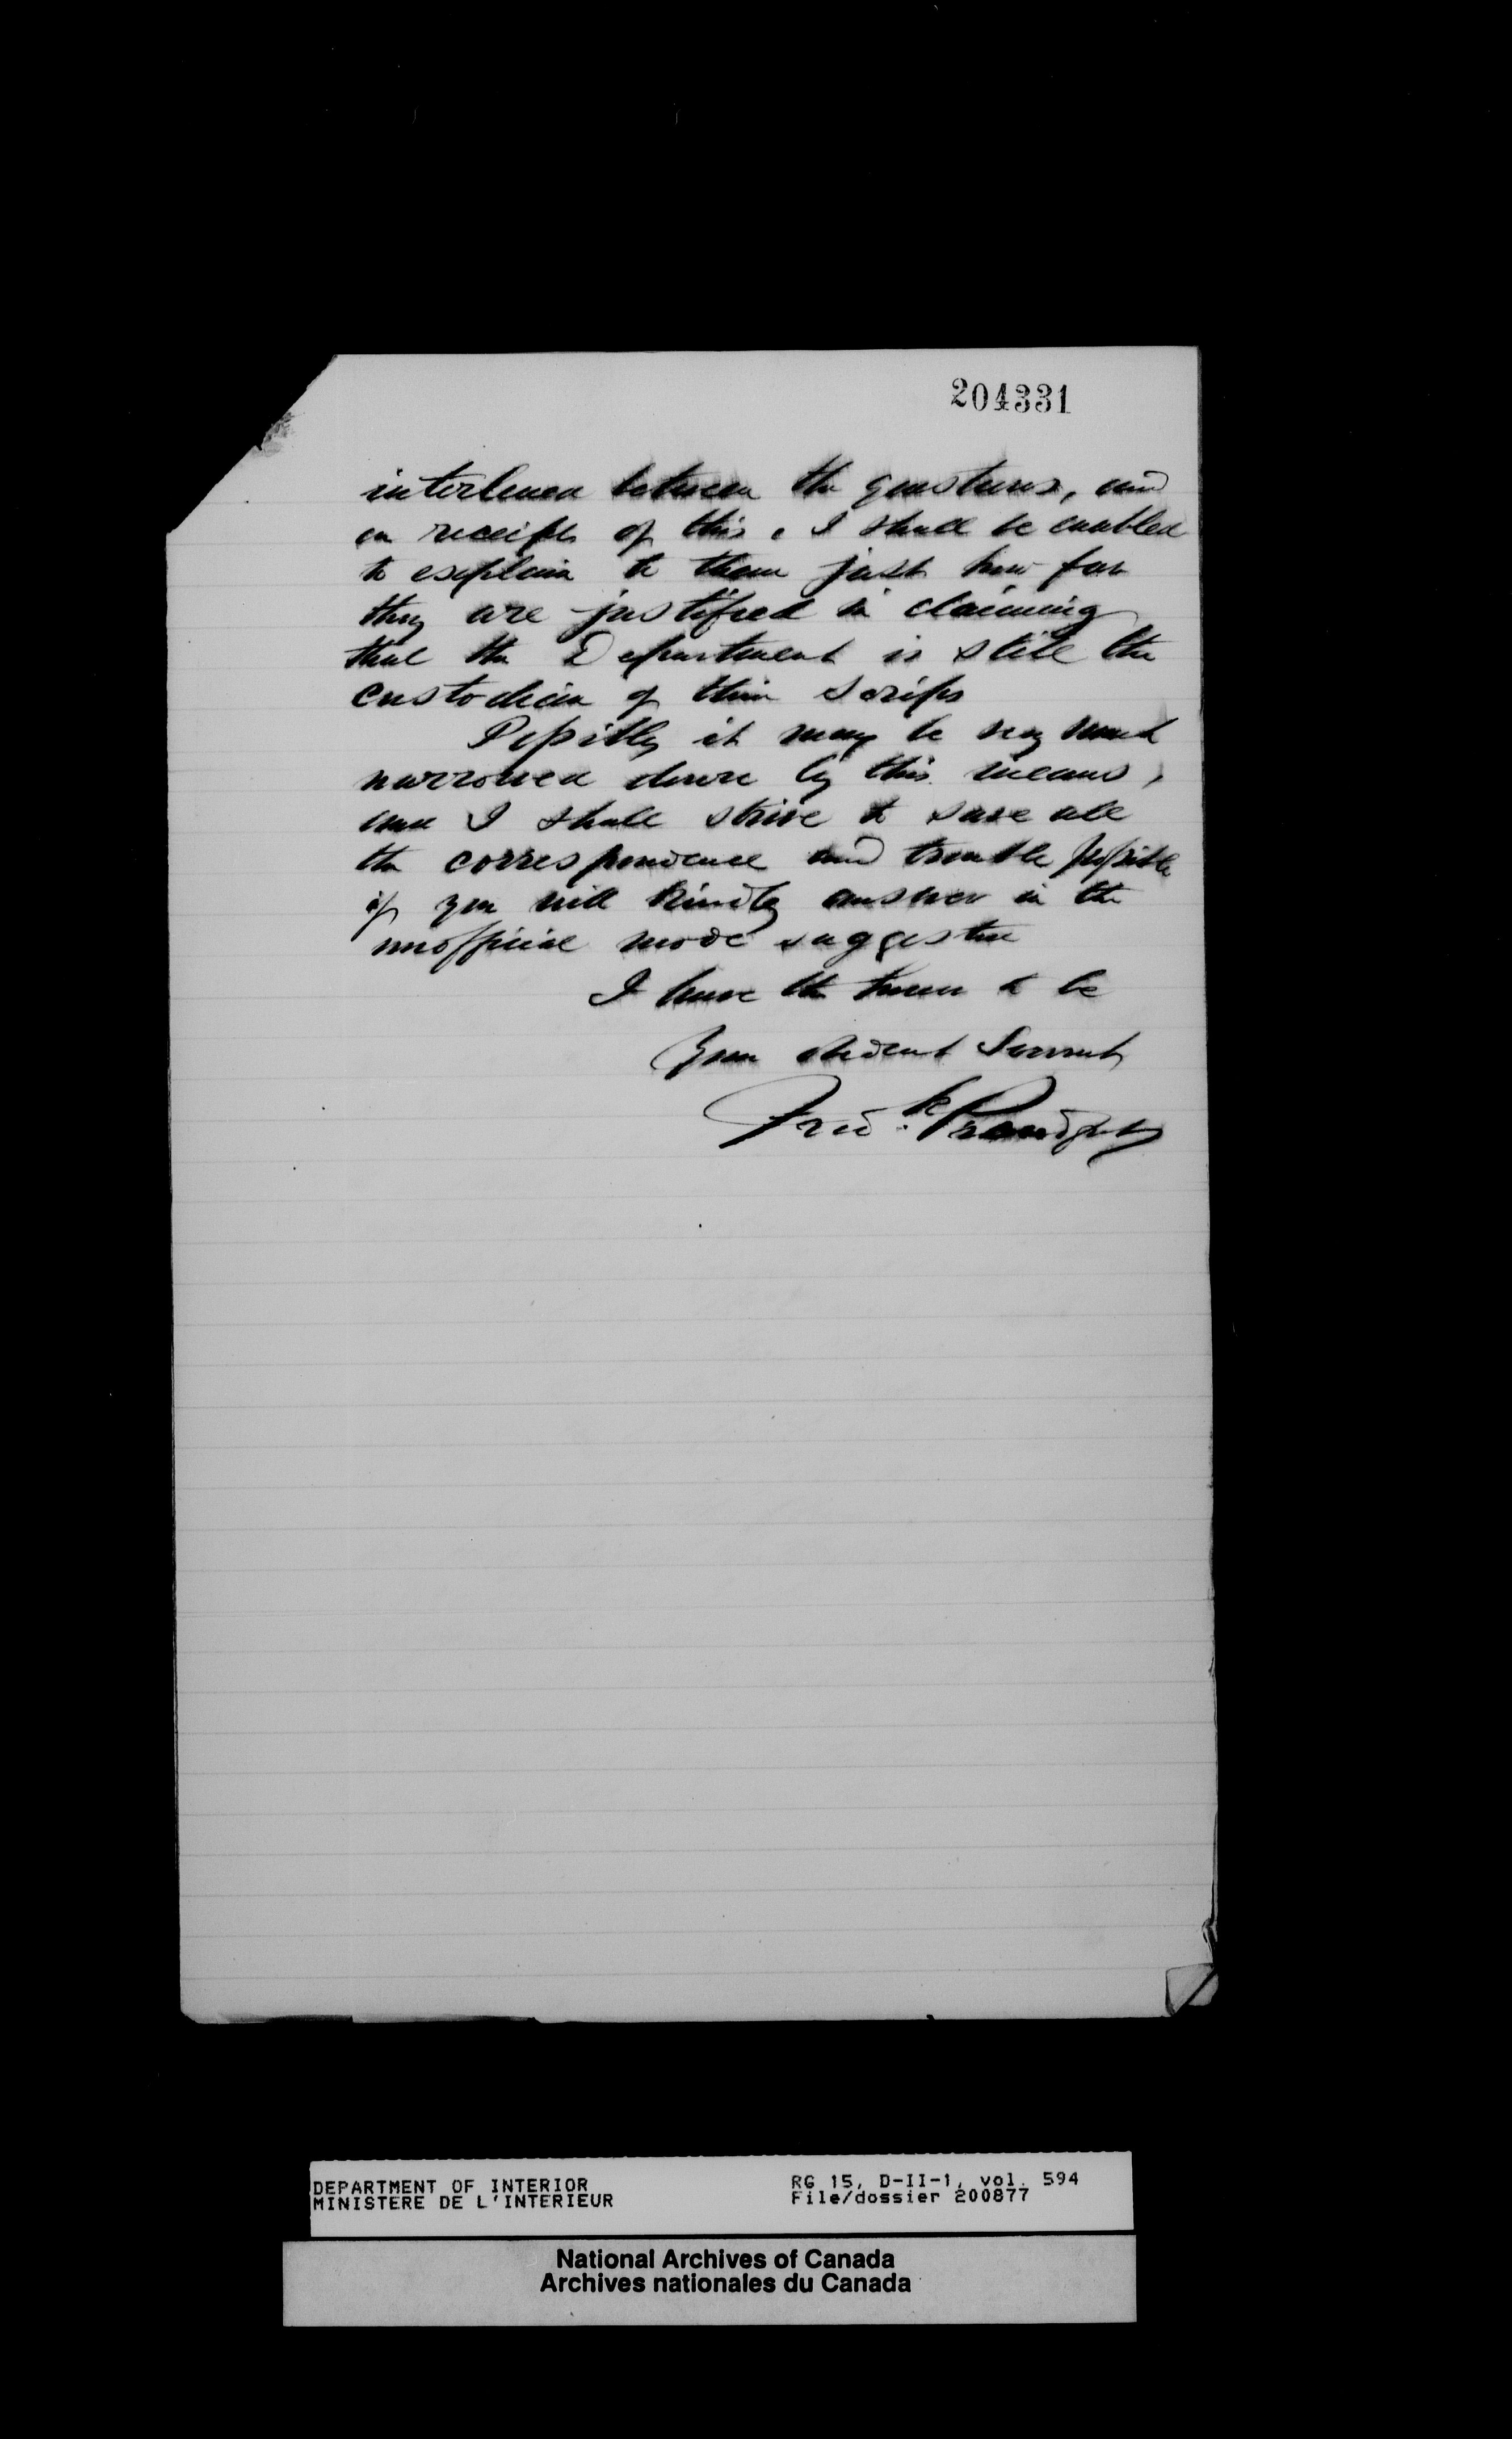 204331
interlined between the questions, and
on receipt of this, I shall be enabled
to explain to them just how far
they are justified in claiming
that the Department is still the
custodian of their Scrips
Possibly it may be very much
narrowed down by this means,
and I shall strive to save all
the correspondence and trouble possible
if you will kindly answer in the
unofficial mode suggested
I have the honor to be
Your obedient Servant
Fred.k
DEPARTMENT OF INTERIOR
MINISTERE DE L'INTERIEUR
RG 15, D-II-1, vol. 594
File/dossier 200877
National Archives of Canada
Archives nationales du Canada